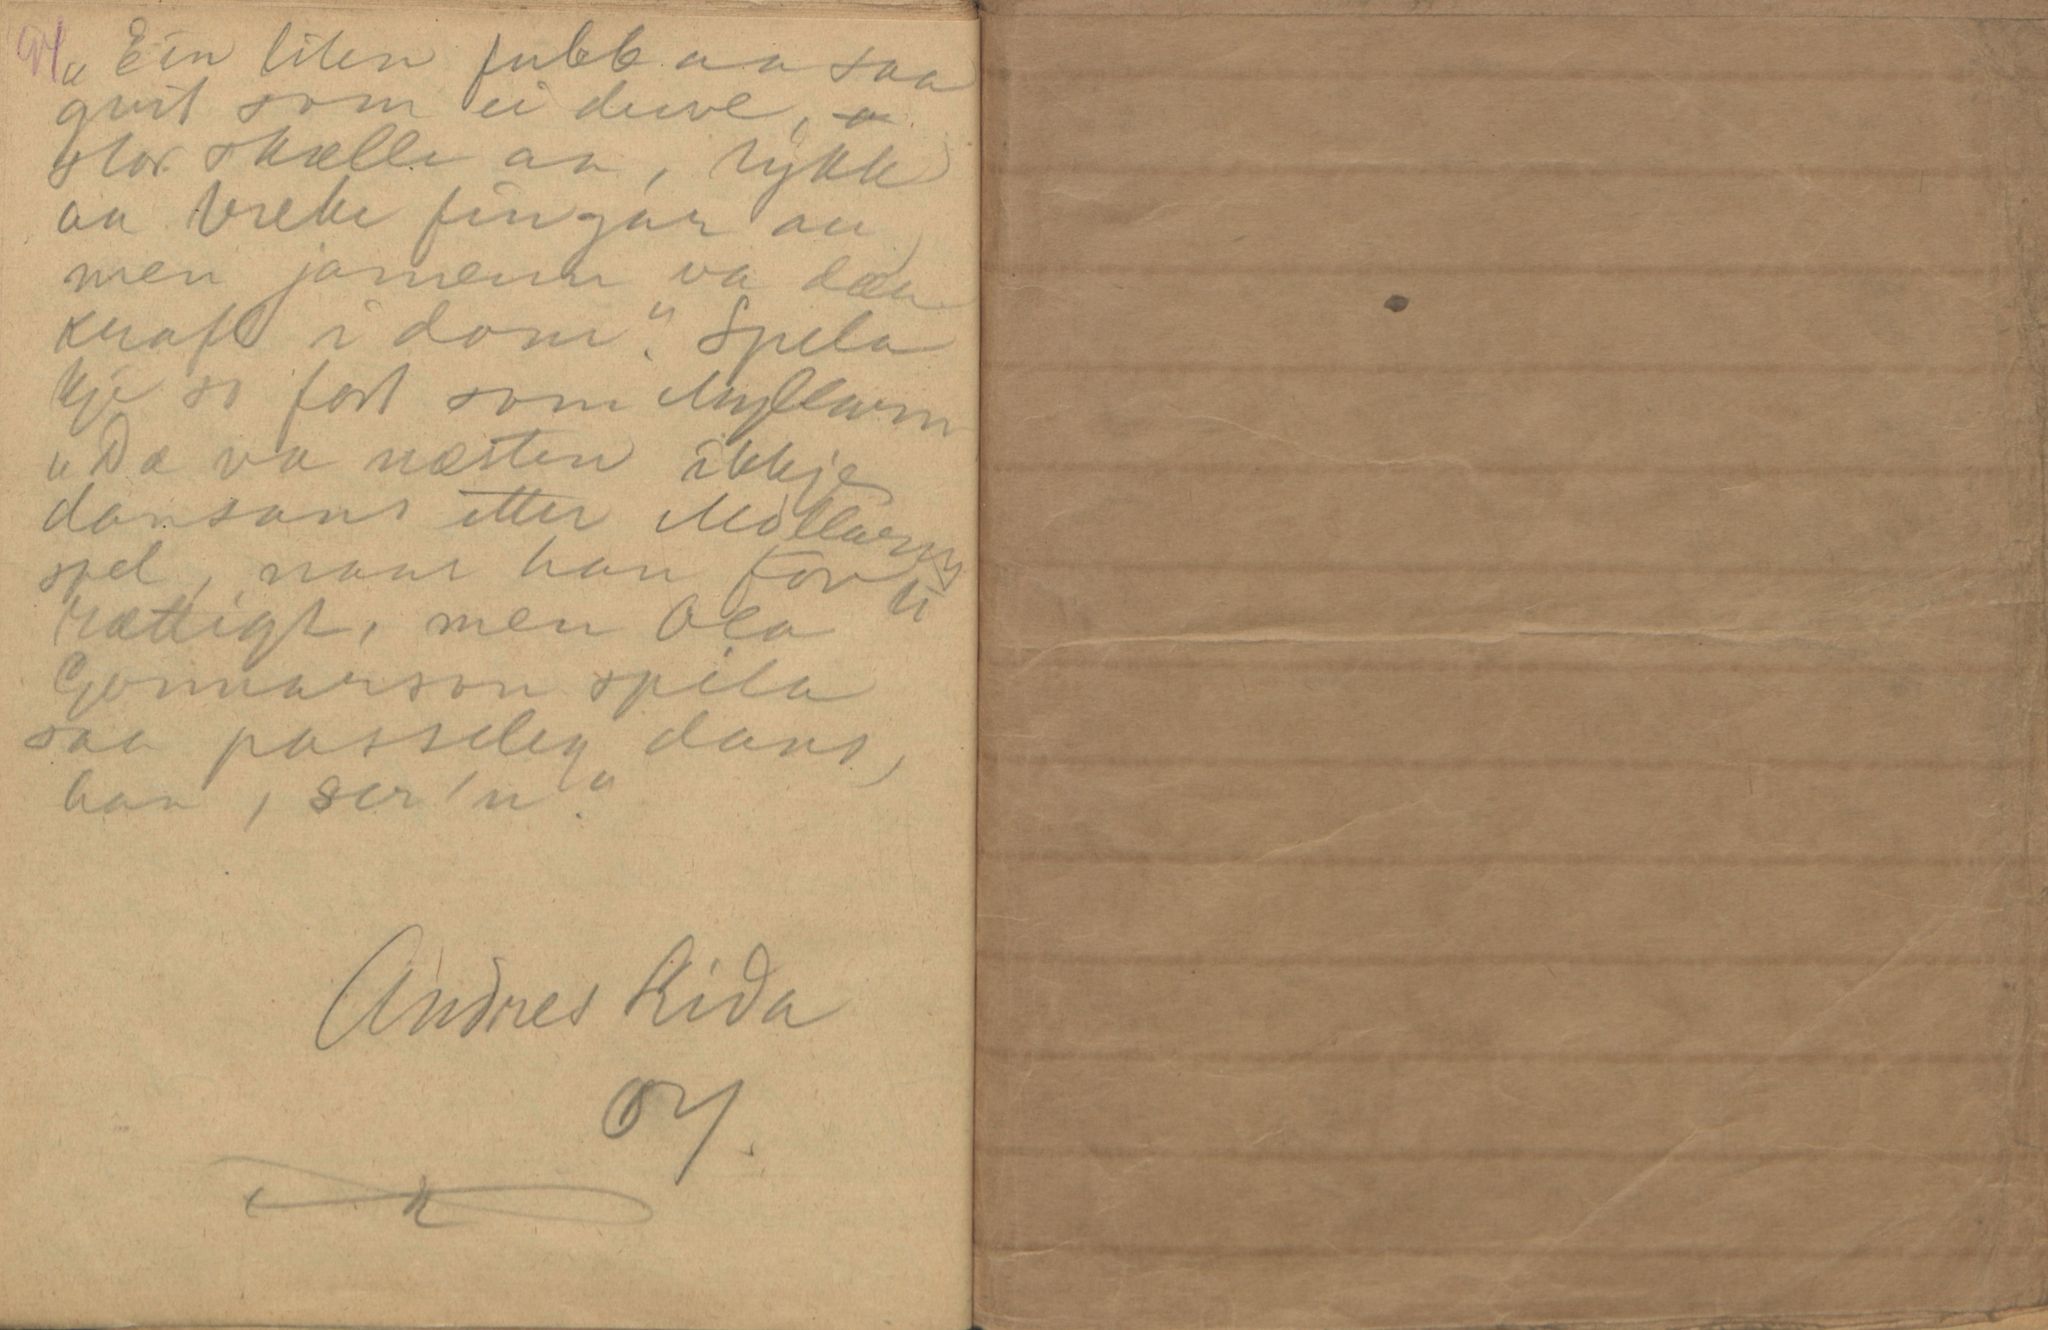 94
„Ein liten fubb aa saa
gvit som ei duve,
stor skalle aa, tykke
aa brede fingar au,
men jamenn va dæ
kraft i dom". Spela
kje so fort som Myllarn
„Dæ va næsten ikkje
dansans etter Möllarns
spel, naar han for ti
rættigt, men Ola
Gonnarson spela
saa passeleg dans,
han, ser'u."
Andres Rida